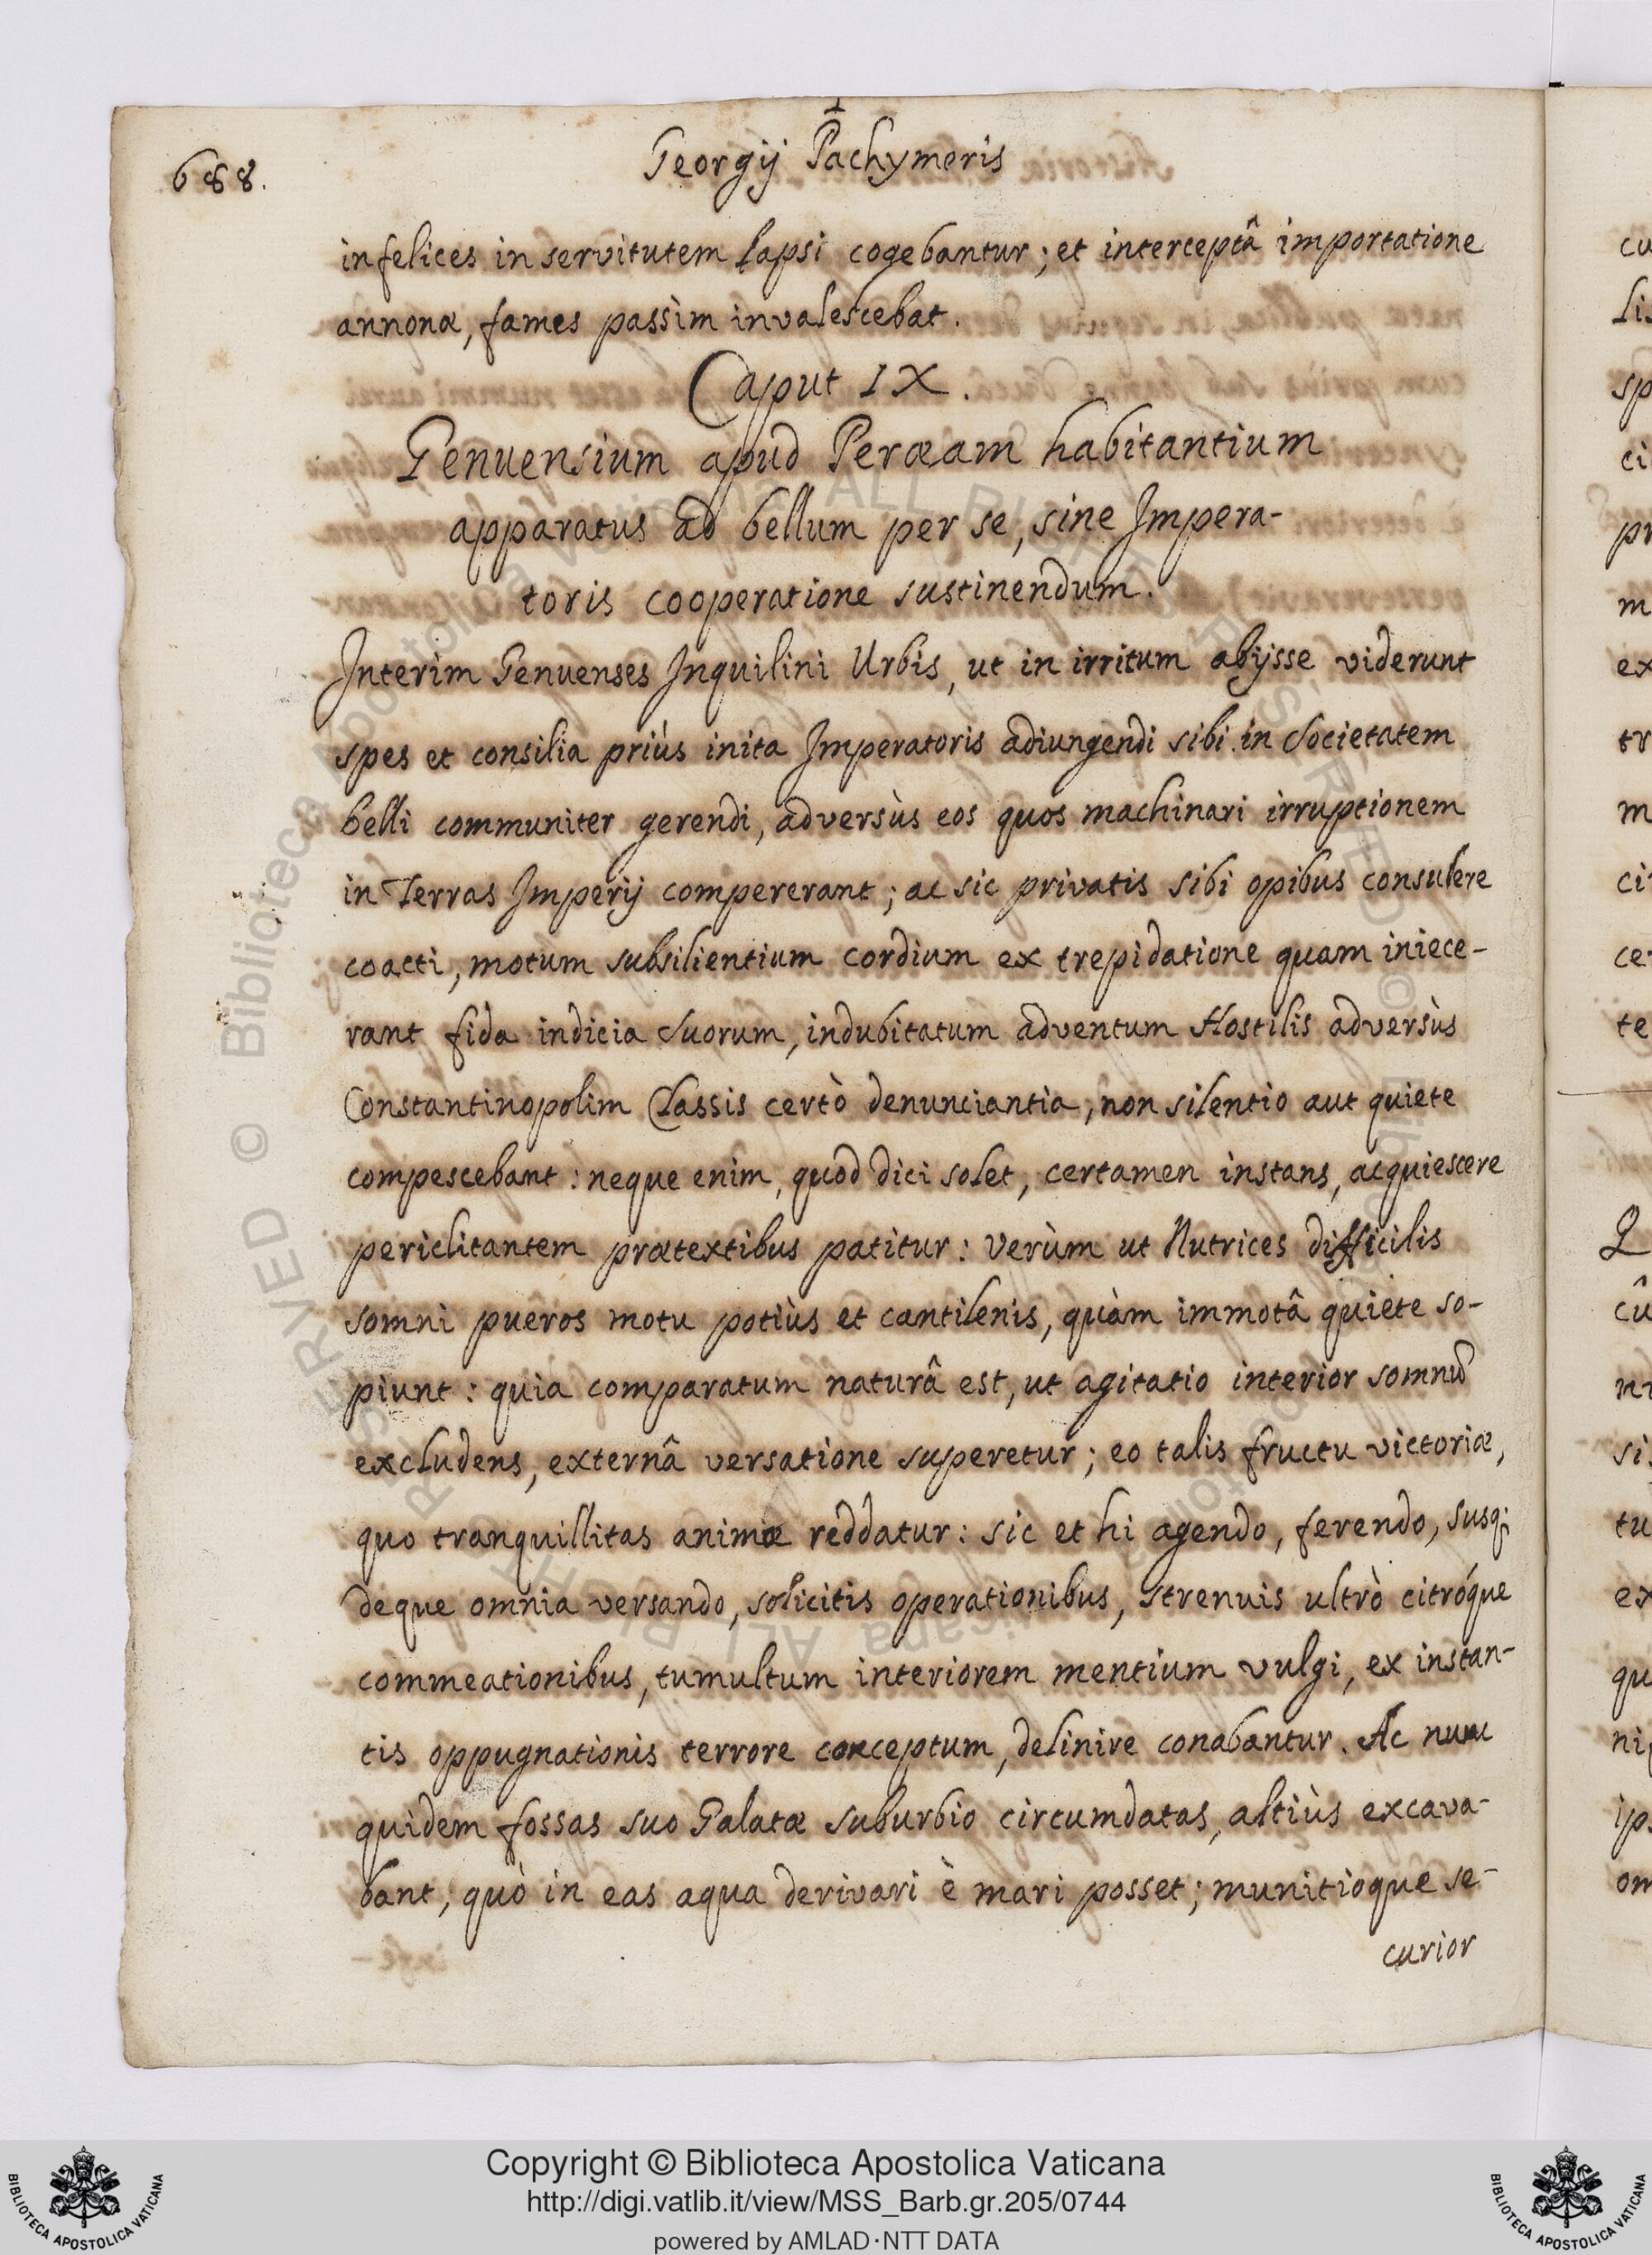 688.
Georgij Pachymeris
infelices in servitutem lapsi cogebantur; et interceptâ importatione
annonæ, fames passìm invalescebat.
Caput IX.
Genuensium apud Peræam habitantium
apparatus ad bellum per se, sine Impera-
toris cooperatione sustinendum.
Interim Genuenses Inquilini Urbis, ut in irritum abijsse viderunt
spes et consilia priùs inita Imperatoris adiungendi sibi in Societatem
belli communiter gerendi, adversùs eos quos machinari irruptionem
in Terras Imperij compererant; ac sic privatis sibi opibus consulere
coacti, motum subsilientium cordium ex trepidatione quam iniece-
rant fida indicia Suorum, indubitatum adventum Hostilis adversùs
Constantinopolim Classis certò denunciantia, non silentio aut quiete
compescebant: neque enim, quod dici solet, certamen instans, acquiescere
periclitantem prætextibus patitur: verùm ut Nutrices difficilis
somni pueros motu potiùs et cantilenis, quàm immotâ quiete so-
piunt: quia comparatum naturâ est, ut agitatio interior somnū
excludens, externâ versatione superetur; eo talis fructu victoriæ,
quo tranquillitas animæ reddatur: sic et hi agendo, ferendo, susq;
deque omnia versando, solicitis operationibus, strenuis ultrò citróque
commeationibus, tumultum interiorem mentium vulgi, ex instan-
tis oppugnationis terrore conceptum, delinire conabantur. Ac nunc
quidem fossas suo Galatæ suburbio circumdatas, altiùs excava-
bant, quò in eas aqua derivari è mari posset; munitióque se-
curior
Copyright © Biblioteca Apostolica Vaticana
http://digi.vatlib.it/view/MSS_Barb.gr.205/0744
powered by AMLAD·NTT DATA